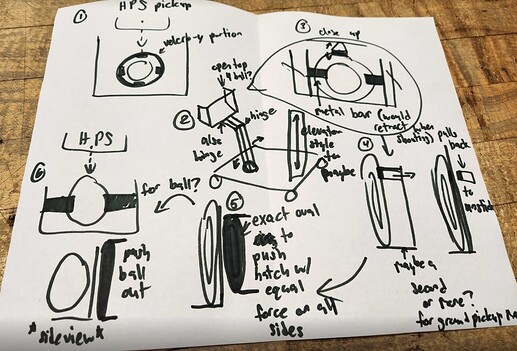 ①
HPS pickup
velcro-y portion
③
close up
metal bar (would
retract when
shooting)
open top
4 ball?
②
hinge
also
hinge
elevator
style
too
maybe
④
pulls
back
to
maybe a
second
or more?
for ground pickup
⑥
HPS
for ball?
push
ball
out
*sideview*
⑤
exact oval
to
push
hatch w/
equal
force on all
sides